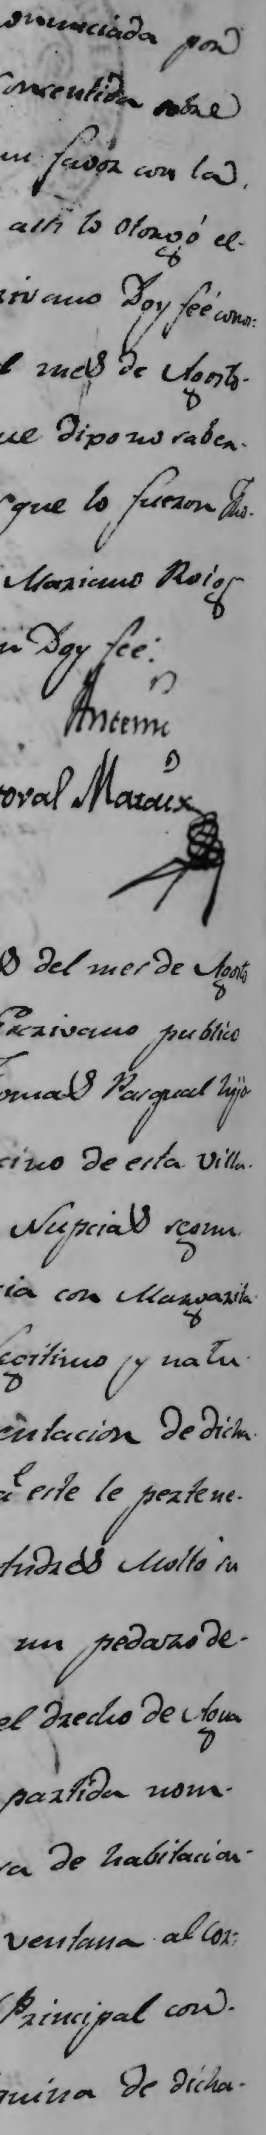 onunciada por
consentida sobre
un favor con la
assi lo otorgó el-
rivano Doy feé cono=
l mes de Agosto-
ue dixo no saber-
que lo fueron Tho-
Mariano Roig
n Doy feé.
Antemi
toval Mataix
s del mes de Agosto
Escrivano publico
omas Pasqual hijo
cino de esta villa.
Nupcias segun
cia con Margarita
legitimo y natu-
entacion de dicha
este le pertene-
Andres Molto su
un pedazo de-
el drecho de Agua
partida nom-
sa de habitacion-
ventana al Cor=
Principal con-
quina de dicha-